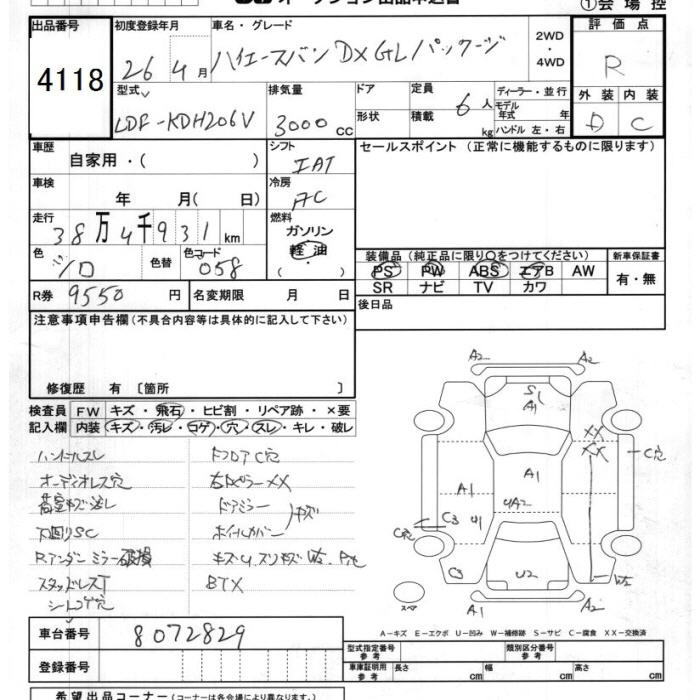 ①会場控
出品番号 初度登録年月 車名・グレード 2WD・4WD 評価点
4118 26 4月 ハイエースバン DX GLパッケージ R
型式 排気量 ドア 形状 定員 積載 ディーラー・並行 モデル年式 年 ハンドル 左・右 外装 内装
LDF-KDH206V 3000cc 6人 kg D C
車歴 自家用・( ) シフト IAT セールスポイント (正常に機能するものに限ります)
車検 年 月(日) 冷房 AC
走行 38万4千931km 燃料 ガソリン 軽油 ( ・ )
色 色替 色コード 058
装備品 (純正品に限り○をつけてください) 新車保証書
PS PW ABS エアB AW 有・無
SR ナビ TV カワ
R券 9550円 名変期限 月 日 後日品
注意事項申告欄(不具合内容等は具体的に記入して下さい)
修復歴 有 〔箇所 〕
検査員記入欄 FW キズ・飛石・ヒビ割・リペア跡・×要
内装 キズ・汚レ・コゲ・穴・スレ・キレ・破レ
ハンドルスレ FフロアC穴
オーディオレス穴 右Aピラーxx
荷室キズ ドアミラー
下廻りSC ホイルカバー キズ
Rアンダーミラー破損 キズU
スタッドレスT BTX
シートコゲ穴
A2 A2
S1
A1
XX
XX
C穴
A1 A1
UA2
C3 U1
C穴
C3 U2 W2
スペア A1 A2
A-キズ E-エクボ U-凹み W-補修跡 S-サビ C-腐食 XX-交換済
車台番号 8072829
型式指定番号 参考 類別区分番号 参考
登録番号
車庫証明用 参考 長さ cm 幅 cm 高さ cm
希望出品コーナー (コーナーは各会場により異なります。)